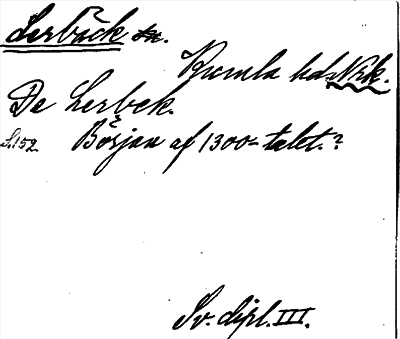 Lerbäck sn.
Kumla hd. Nrk.
De Lerbek.
S. 152. Början af 1300-talet.?
Sv. dipl. III.